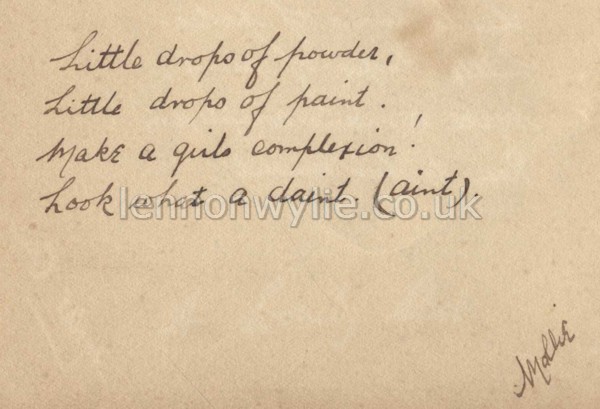 Little drops of powder,
Little drops of paint.
Make a girls complexion!
Look what a daint. (aint).
lennonwylie.co.uk
Mollie